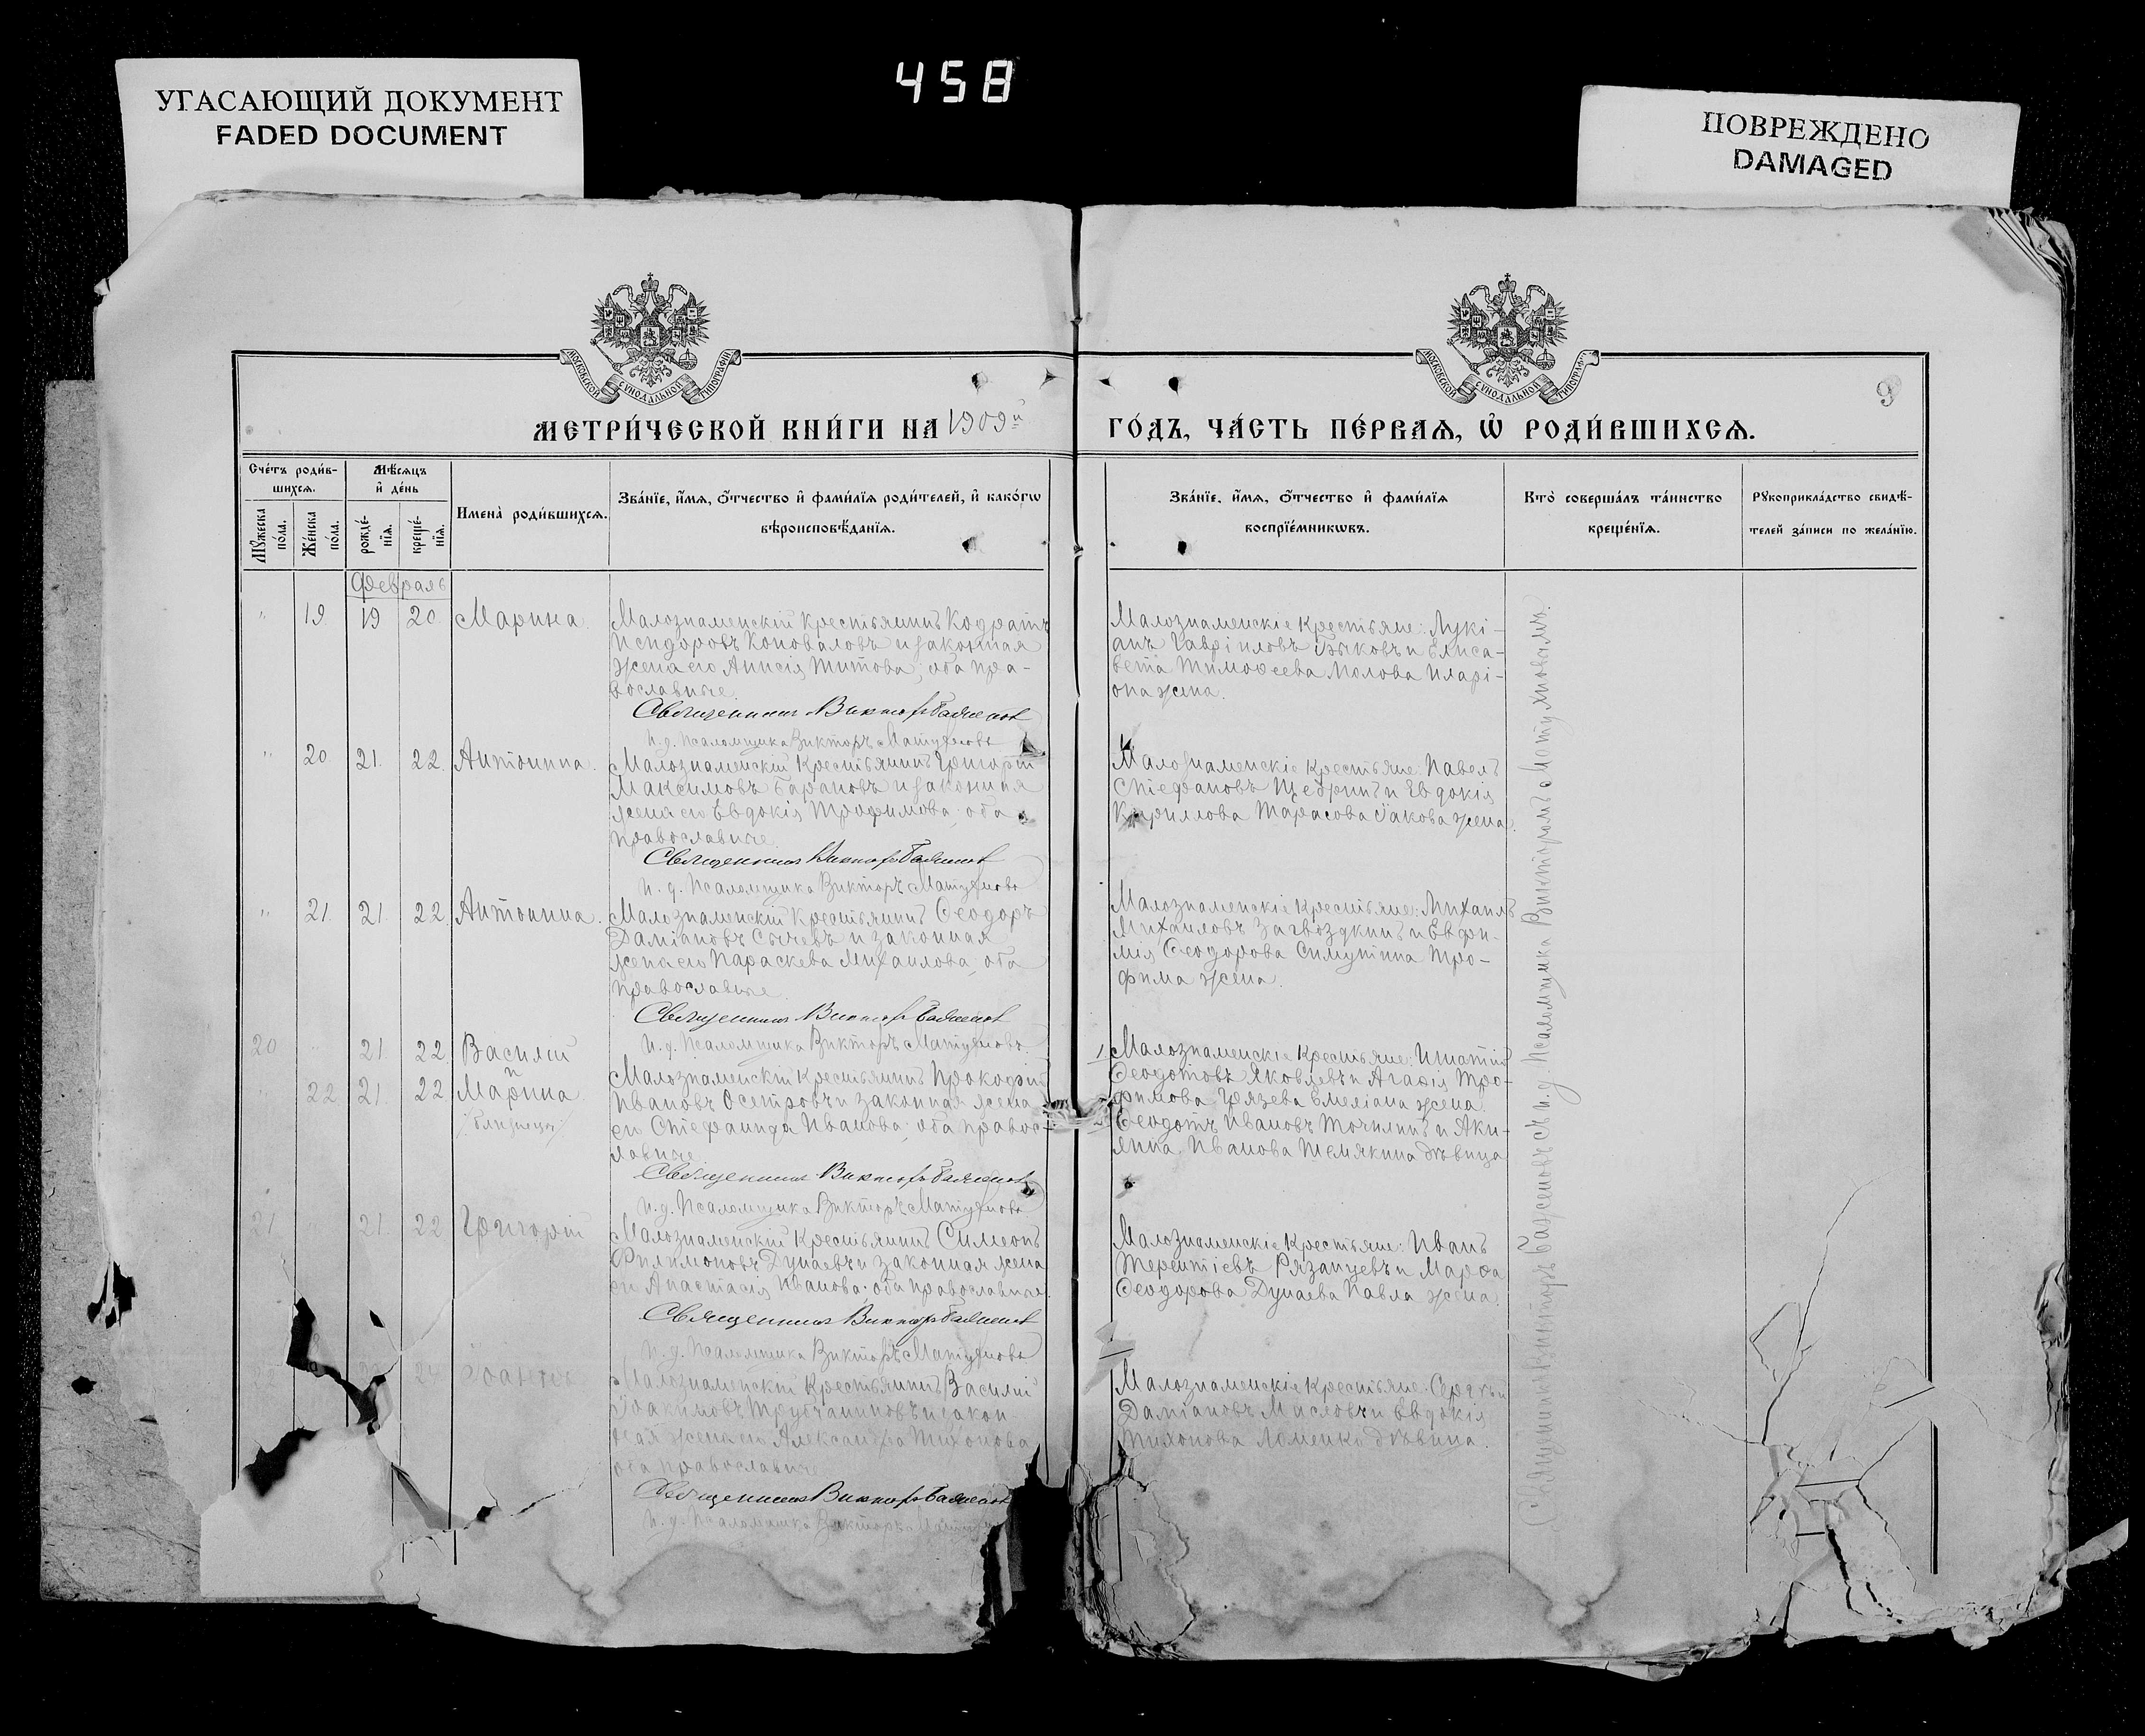 458
УГАСАЮЩИЙ ДОКУМЕНТ
FADED DOCUMENT
ПОВРЕЖДЕНО
DAMAGED
МОСКОВСКОЙ СУНОДАЛЬНОЙ ТИПОГРАФІИ
МОСКОВСКОЙ СУНОДАЛЬНОЙ ТИПОГРАФІИ
9
МЕТРИ́ЧЕСКОЙ КНИ́ГИ НА 1909й
ГО́ДЪ, ЧА́СТЬ ПЕ́РВАѦ, Ѡ҆ РОДИ́ВШИХСѦ.
Сче́тъ роди́в-
шихсѧ.
Мѣ́сѧцъ
и҆ де́нь
Мꙋ́жеска по́ла.
Же́нска по́ла.
рожде́-нїѧ.
креще́-нїѧ.
Имена̀ роди́вшихсѧ.
Зва́нїе, и҆́мѧ, ѻ҆́тчество и҆ фами́лїѧ роди́телей, и҆ како́гѡ
вѣроисповѣ́данїѧ.
Зва́нїе, и҆́мѧ, ѻ҆́тчество и҆ фами́лїѧ
воспрїе́мникѡвъ.
Кто̀ соверша́лъ та́инство
креще́нїѧ.
Рꙋкоприкла́дство свидѣ́-
телей за́писи по жела́нїю.
Февраль
" 19 19 20 Марина.
Малознаменскій Крестьянинъ Кодратъ
Исидоровъ Коноваловъ и законная
жена его Анисія Титова; оба пра-
вославные.
Священникъ Викторъ Баженовъ
и. д. Псаломщика Викторъ Матухновъ
Малознаменскіе Крестьяне: Лукі-
анъ Гавріиловъ Быковъ и Елиса-
вета Тимоѳеева Молова Иларі-
она жена.
" 20 21. 22. Антонина.
Малознаменскій Крестьянинъ Григорій
Максимовъ Барановъ и законная
жена его Евдокія Трофимова; оба
православные.
Священникъ Викторъ Баженовъ
и. д. Псаломщика Викторъ Матухновъ
Малознаменскіе Крестьяне: Павелъ
Стефановъ Щедринъ и Евдокія
Кириллова Тарасова Іакова жена.
" 21. 21. 22. Антонина.
Малознаменскій Крестьянинъ Ѳеодоръ
Даміановъ Сычевъ и законная
жена его Параскева Михаилова, оба
православные.
Священникъ Викторъ Баженовъ
и. д. Псаломщика Викторъ Матухновъ
Малознаменскіе Крестьяне: Михаилъ
Михаиловъ Загвоздкинъ и Евфи-
мія Ѳеодорова Симутина Тро-
фима жена.
20 " 21. 22. Василій
и
" 22 21. 22 Марина
/близнецы/
Малознаменскій Крестьянинъ Прокофій
Ивановъ Осетровъ и законная жена
его Стефанида Иванова; оба правос-
лавные.
Священникъ Викторъ Баженовъ
и. д. Псаломщика Викторъ Матухновъ
Малознаменскіе Крестьяне: Игнатій
Ѳеодотовъ Яковлевъ и Агафія Тро-
фимова Грязева Емеліана жена.
Ѳеодотъ Ивановъ Точилинъ и Аки-
лина Иванова Шемякина дѣвица
21 21. 22 Григорій
Малознаменскій Крестьянинъ Симеонъ
Филимоновъ Дунаевъ и законная жена
его Анастасія Иванова; оба православные.
Священникъ Викторъ Баженовъ
и. д. Псаломщика Викторъ Матухновъ
Малознаменскіе Крестьяне: Иванъ
Терентіевъ Рязанцевъ и Марѳа
Ѳеодорова Дунаева Павла жена.
24 Іоаннъ
Малознаменскій Крестьянинъ Василій
Іоакимовъ и закон-
ная жена его Александра Тихонова
оба православные
Священникъ Викторъ Баженовъ
и. д. Псаломщика Викторъ
Малознаменскіе Крестьяне: Сергѣй
Даміановъ Масловъ и Евдокія
Тихонова Ломенко дѣвица.
Священникъ Викторъ Баженовъ съ и. д. Псаломщика Викторомъ Матухновымъ.